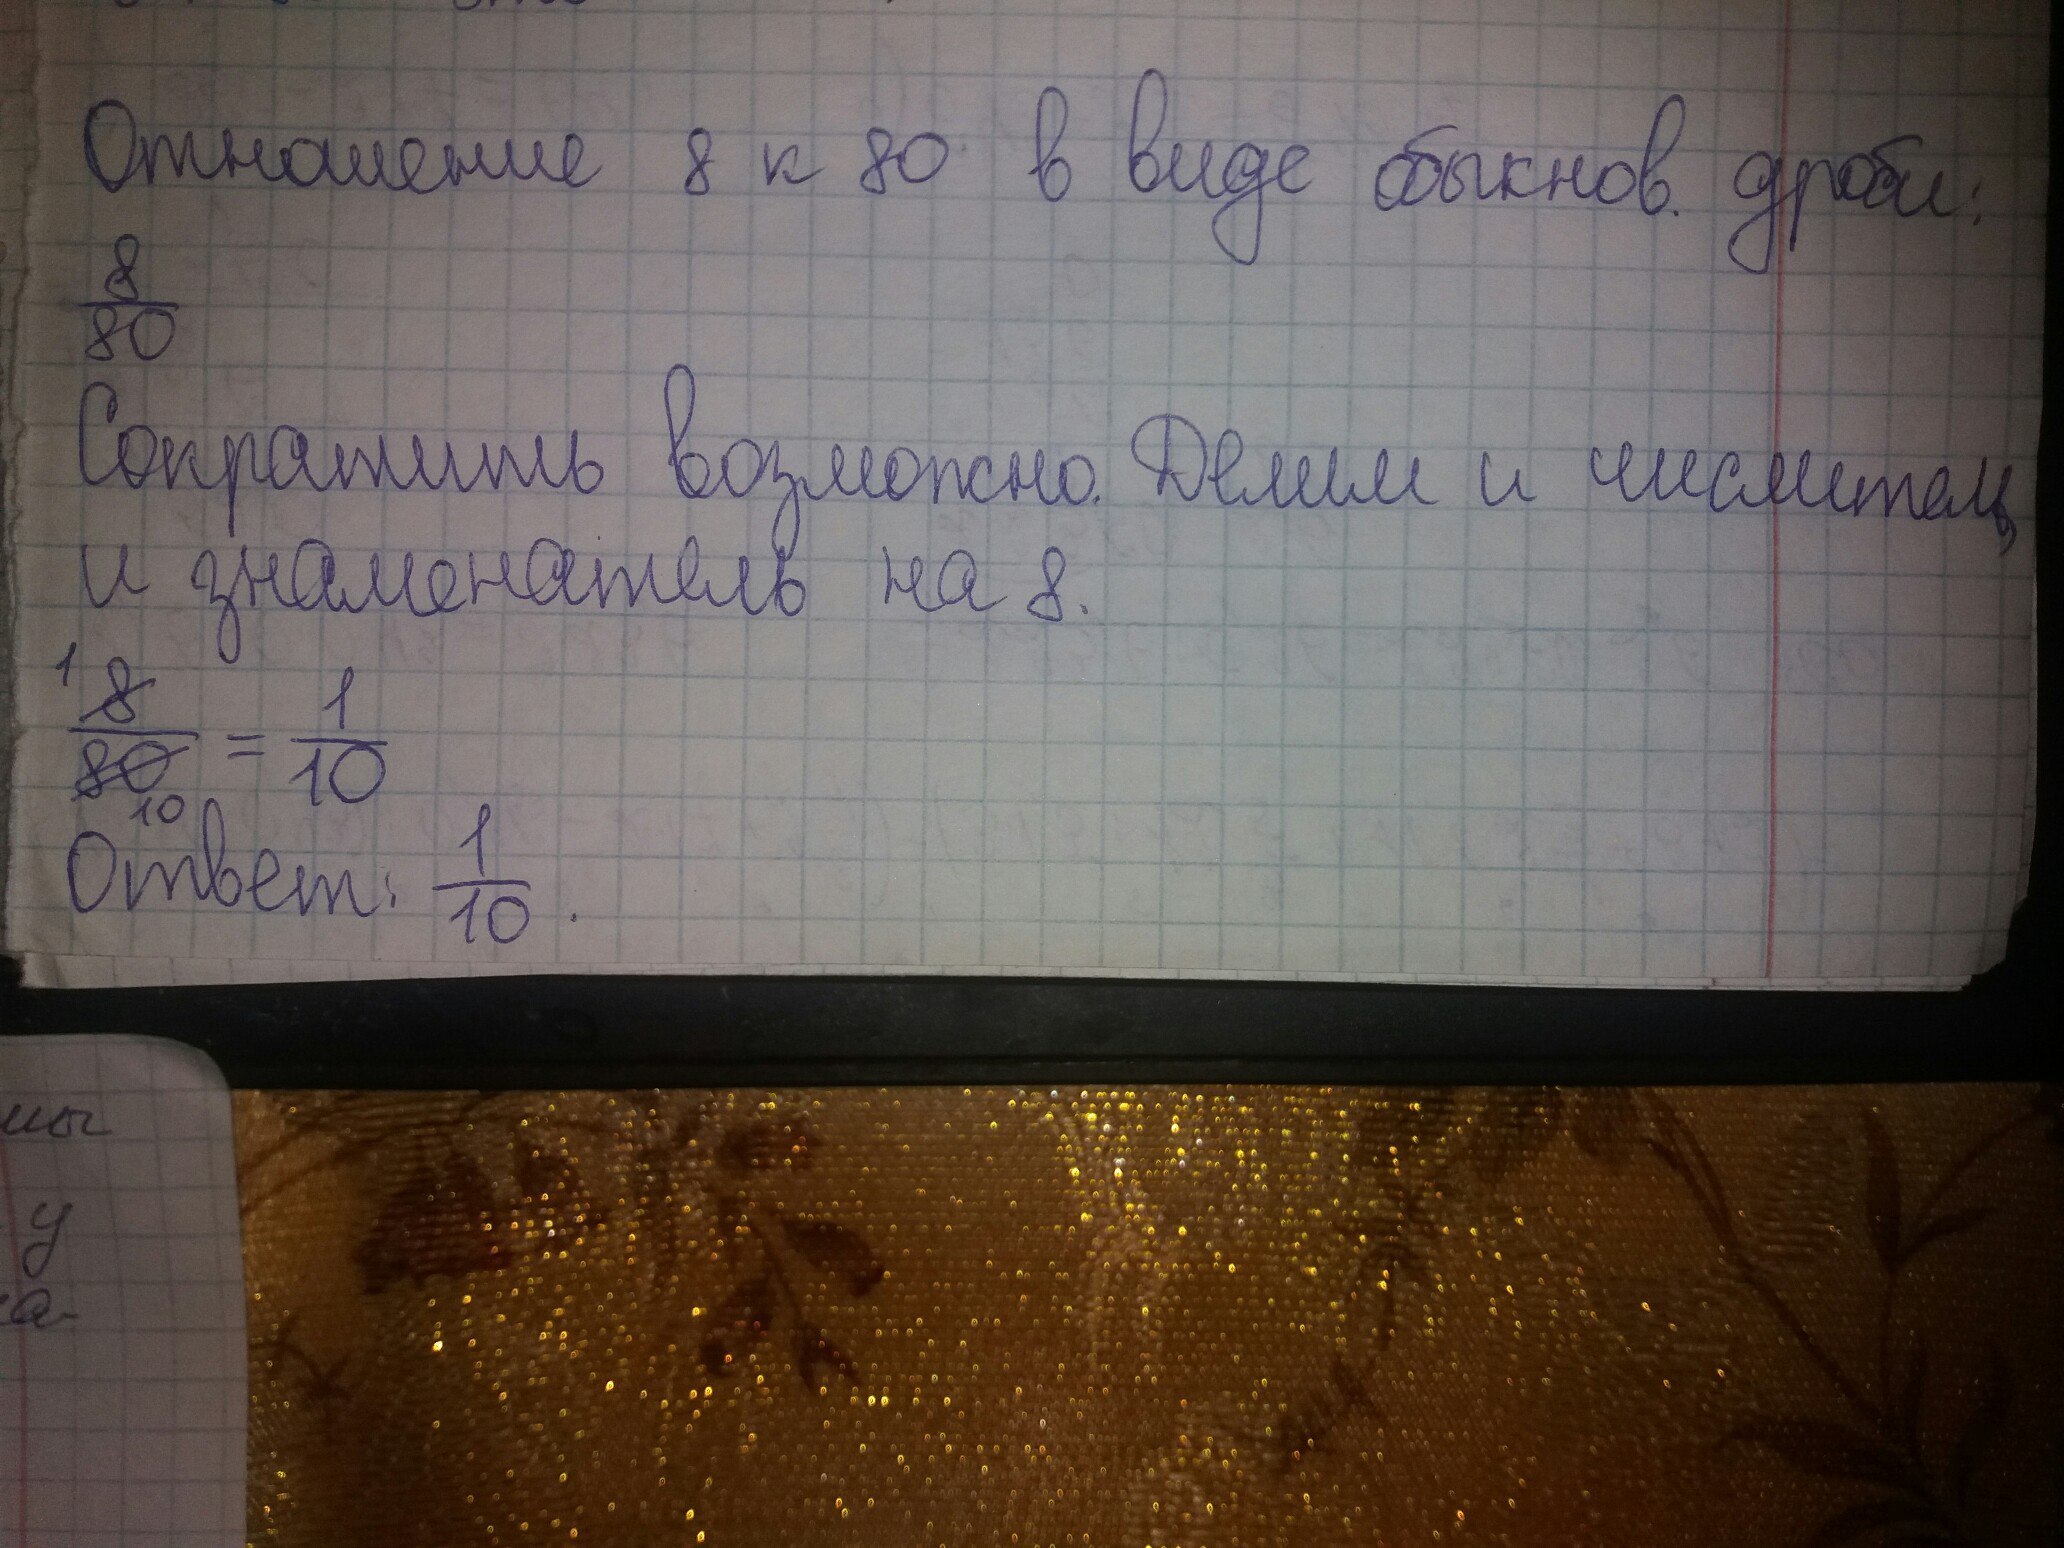 Отношение 8 к 80 в виде обыкнов. дроби:
8/80
Сократить возможно. Делим и числитель
и знаменатель на 8.
1 8/80 10 = 1/10
Ответ: 1/10.
мы
у
ка-